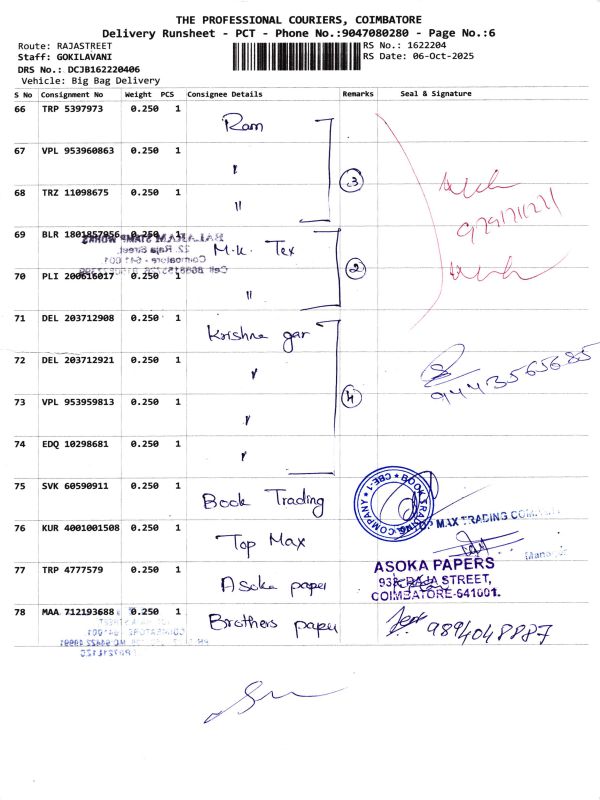 THE PROFESSIONAL COURIERS, COIMBATORE
Delivery Runsheet - PCT - Phone No.:9047080280 - Page No.:6
Route: RAJASTREET RS No.: 1622204
Staff: GOKILAVANI RS Date: 06-Oct-2025
DRS No.: DCJB162220406
Vehicle: Big Bag Delivery
S No Consignment No Weight PCS Consignee Details Remarks Seal & Signature
66 TRP 5397973 0.250 1 Ram
67 VPL 953960863 0.250 1 "
3
68 TRZ 11098675 0.250 1 "
69 BLR 1801857056 0.250 1 M.K. Tex
2
70 PLI 200616017 0.250 1 "
71 DEL 203712908 0.250 1 Krishna gar
72 DEL 203712921 0.250 1 "
9443565685
73 VPL 953959813 0.250 1 "
4
74 EDQ 10298681 0.250 1 "
75 SVK 60590911 0.250 1 Book Trading
BOOK TRADING COMPANY * CBE-1 *
76 KUR 4001001508 0.250 1 Top Max
TOP MAX TRADING
77 TRP 4777579 0.250 1 Asoka paper
ASOKA PAPERS
93, RAJA STREET,
COIMBATORE-641001.
78 MAA 712193688 0.250 1 Brothers paper 9894048887